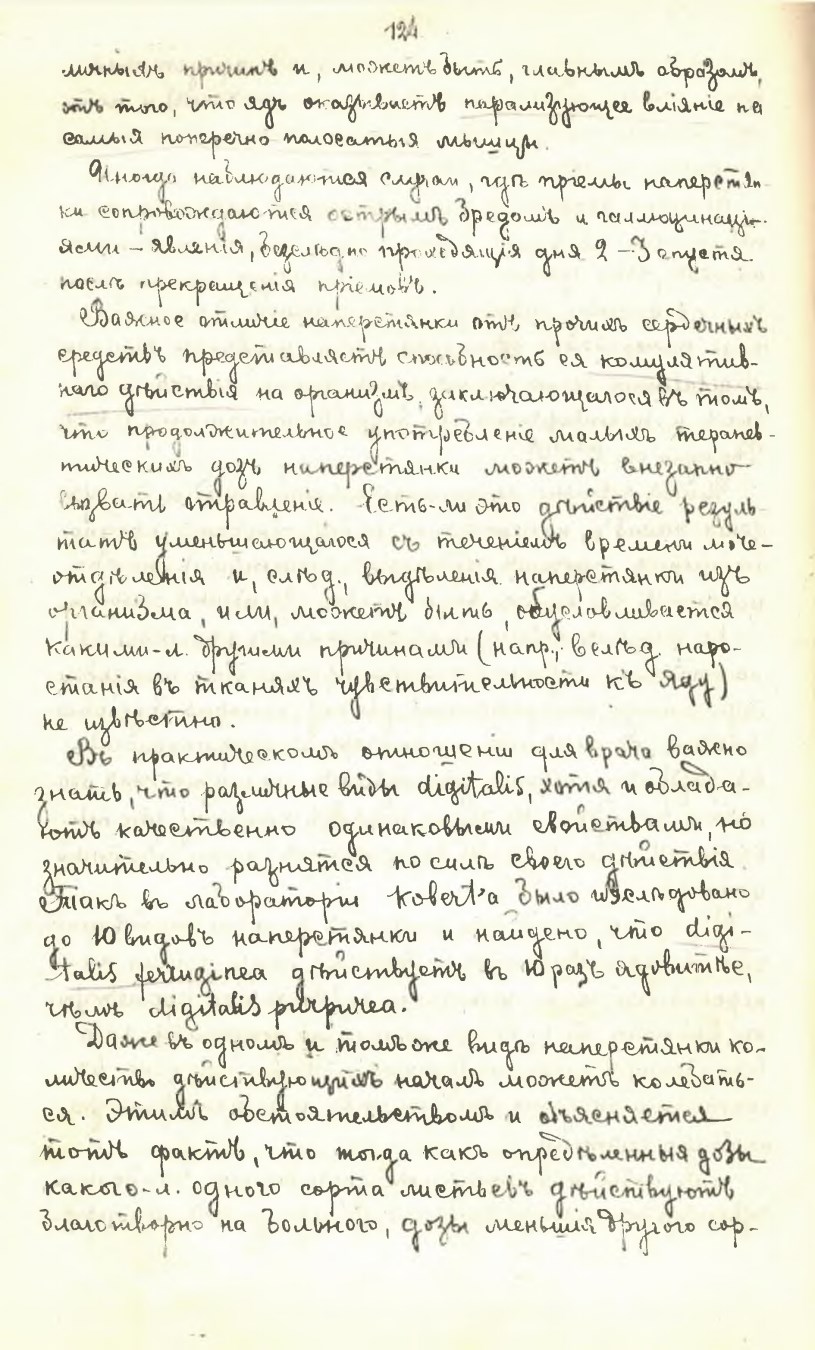 124
личныхъ причинъ и, можетъ быть, главнымъ образомъ,
отъ того, что ядъ оказываетъ парализующее вліяніе на
самыя поперечно полосатыя мышцы.
Иногда наблюдаются случаи, гдѣ пріемы наперстян-
ки сопровождаются острымъ бредомъ и галлюцинаці-
ями – явленія, безслѣдно проходящія дня 2–3 спустя
послѣ прекращенія пріемовъ.
Важное отличіе наперстянки отъ прочихъ сердечныхъ
средствъ представляетъ способность ея комулятив-
наго дѣйствія на организмъ, заключающагося въ томъ,
что продолжительное употребленіе малыхъ терапев-
тическихъ дозъ наперстянки можетъ внезапно
вызвать отравленіе. Есть-ли это дѣйствіе резуль-
татъ уменьшающагося съ теченіемъ времени моче-
отдѣленія и, слѣд., выдѣленія наперстянки изъ
организма, или, можетъ быть, обусловливается
какими-л. другими причинами (напр., вслѣд. наро-
станія въ тканяхъ чувствительности къ яду)
не извѣстно.
Въ практическомъ отношеніи для врача важно
знать, что различные виды digitalis, хотя и облада-
ютъ качественно одинаковыми свойствами, но
значительно разнятся по силѣ своего дѣйствія
Такъ въ лабораторіи Kobert'a было изслѣдовано
до 10 видовъ наперстянки и найдено, что digi-
talis ferruginea дѣйствуетъ въ 10 разъ ядовитѣе,
чѣмъ digitalis purpurea.
Даже въ одномъ и томъ же видѣ наперстянки ко-
личество дѣйствующихъ началъ можетъ колебать-
ся. Этимъ обстоятельствомъ и объясняется
тотъ фактъ, что тогда какъ опредѣленныя дозы
какого-л. одного сорта листьевъ дѣйствуютъ
благотворно на больного, дозы меньшія другого сор-